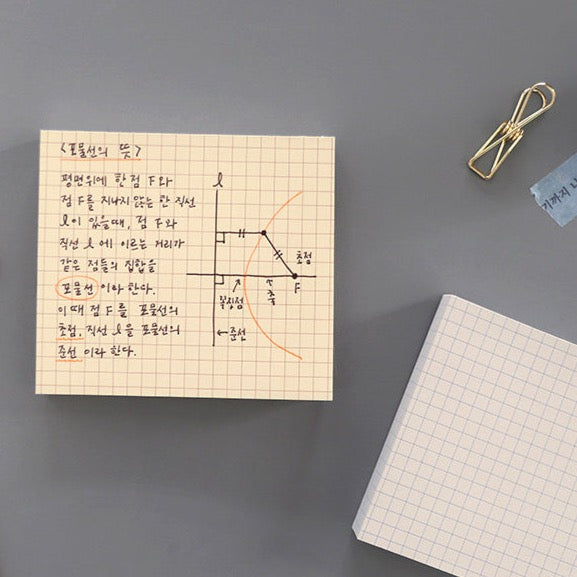 <포물선의 뜻>
평면위에 한 점 F와
점 F를 지나지 않는 한 직선
l이 있을때, 점 F와
직선 l에 이르는 거리가
같은 점들의 집합을
포물선 이라 한다.
이때 점 F를 포물선의
초점, 직선 l을 포물선의
준선 이라 한다.
l
초점
F
꼭짓점
축
←준선
기까지 나